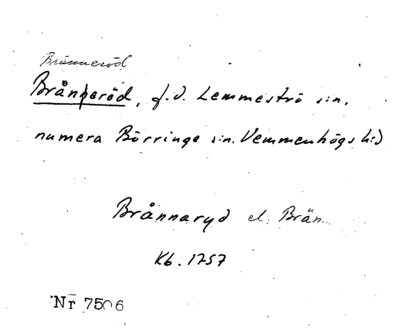 Brånneröd
Brånneröd, f.d. Lemmeströ s:n,
numera Börringe s:n. Vemmenhögs h:d
Brånnaryd el. Brän..
Kb. 1757
Nr 7506